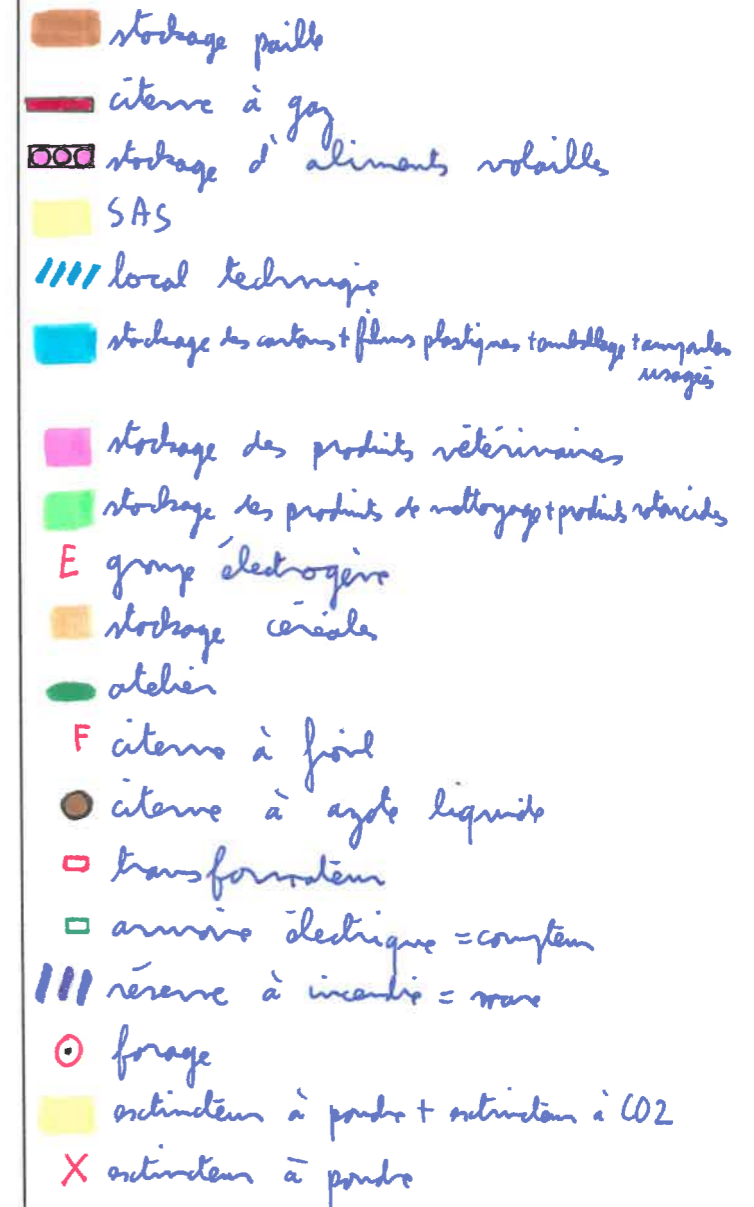 stockage paille
citerne à gaz
stockage d'aliments volailles
SAS
local technique
stockage des cartons + films plastiques + emballage + ampoules
usagés
stockage des produits vétérinaires
stockage des produits de nettoyage + produits rotoncides
E groupe électrogène
stockage céréales
atelier
F citerne à fioul
citerne à azote liquide
transformateur
armoire électrique = compteur
réserve à incendie = mare
forage
extincteur à poudre + extincteur à CO2
X extincteur à poudre